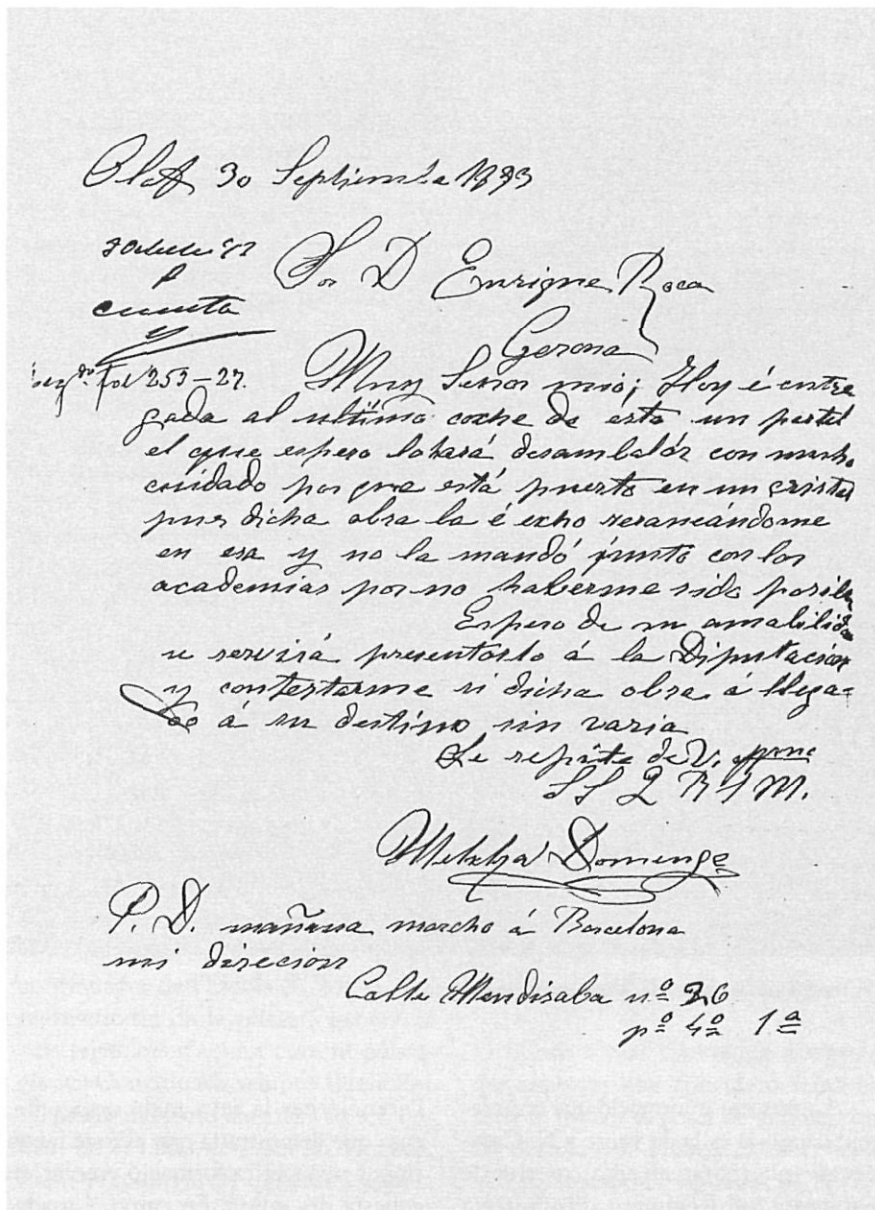 Olot 30 Septiembre 1893
cuenta
Sor D Enrique Roca
Gerona
fol 253-27. Muy Señor mio; Hoy é entre
gada al ultimo coche de esta un pastel
el que espero lo hará desambalár con mucho
cuidado por que está puesto en un cristal
pues dicha obra la é echo
en esa y no la mandó junto con las
academias por no haberme sido posible
Espero de su amabilidad
se servirá presentarlo á la Diputacion
y contestarme si dicha obra á llega=
do á su destino sin varia
Se repite de V.
S S Q B S M.
Melchor Domenge
P. D. mañana marcho á Barcelona
mi direcion
Calle Mendisaba nº 26
pº 4º 1ª